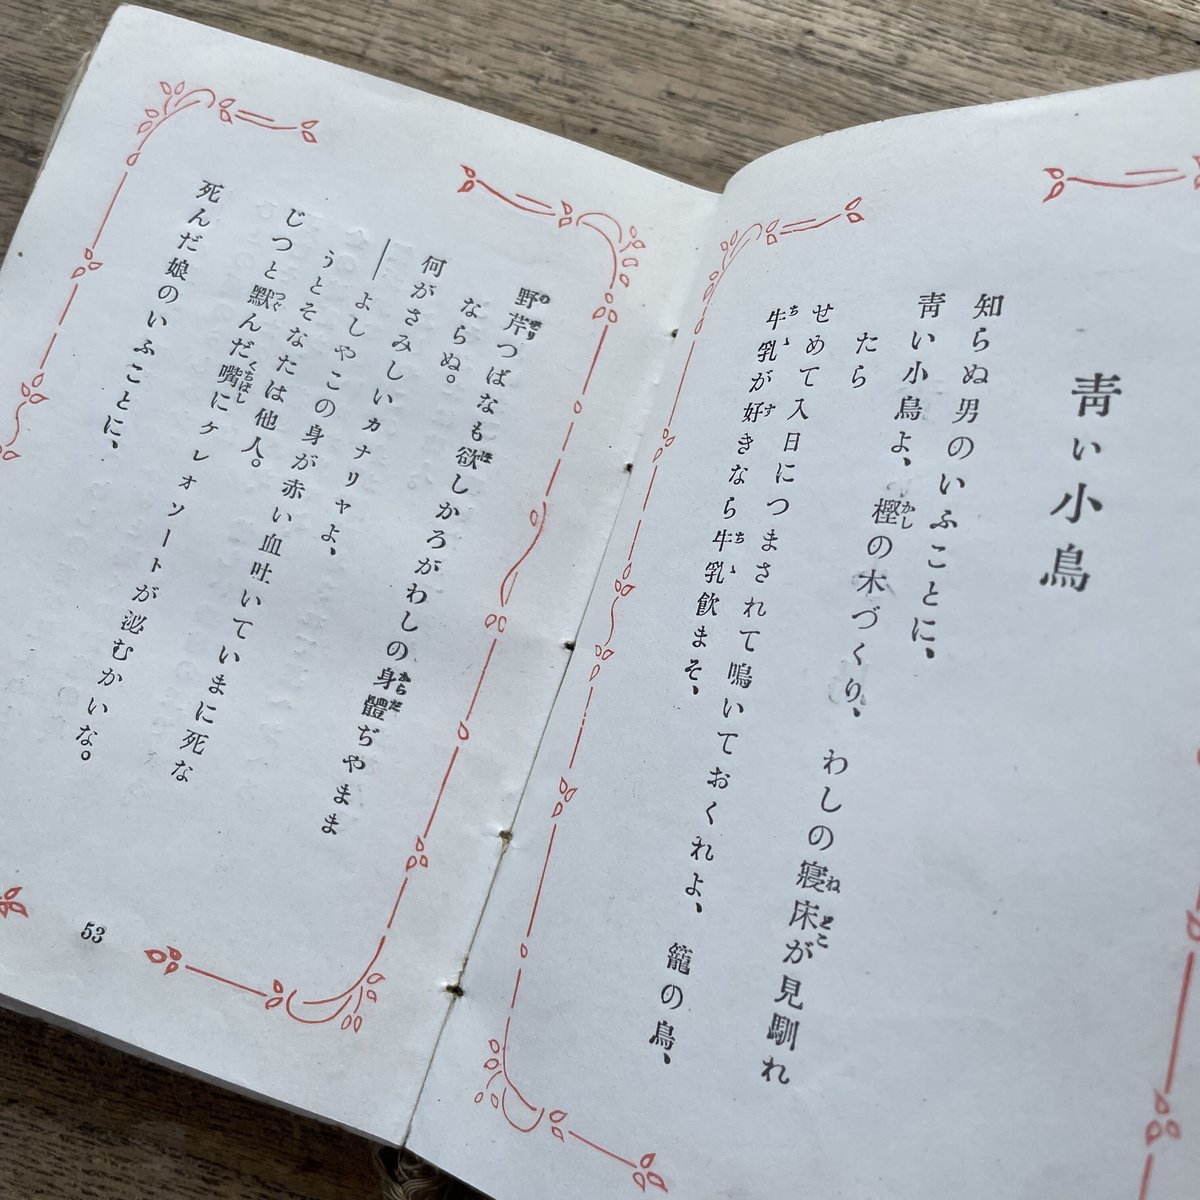 靑い小鳥
知らぬ男のいふことに、
靑い小鳥よ、樫の木づくり、わしの寢床が見馴れ
たら
せめて入日につまされて鳴いておくれよ、籠の鳥、
牛乳が好きなら牛乳飮まそ、
野芹つばなも欲しかろがわしの身體ぢやまま
ならぬ。
何がさみしいカナリヤよ、
――よしやこの身が赤い血吐いていまに死な
うとそなたは他人。
じつと默んだ嘴にクレオソートが泌むかいな。
死んだ娘のいふことに、
53